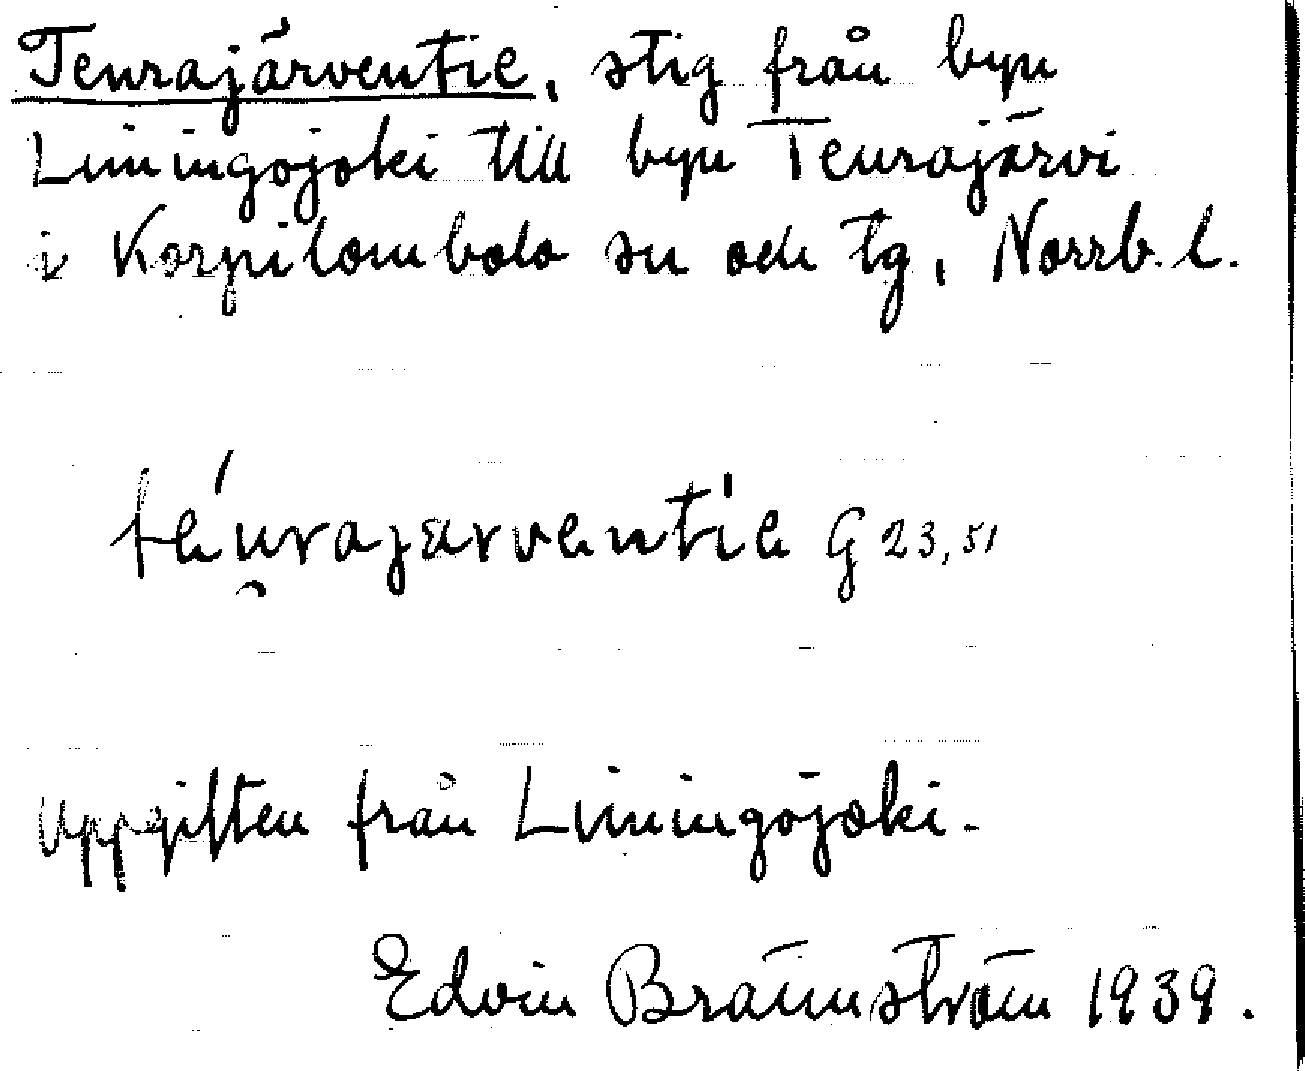 Teurajärventie, stig från byn
LiminGojoki till byn Teurajärvi
i Korpilombolo sn och tg, Norrb. l.
téu̯rajærventie G 23,51
Uppgiften från Limingojoki.
Edvin Brännström 1939.